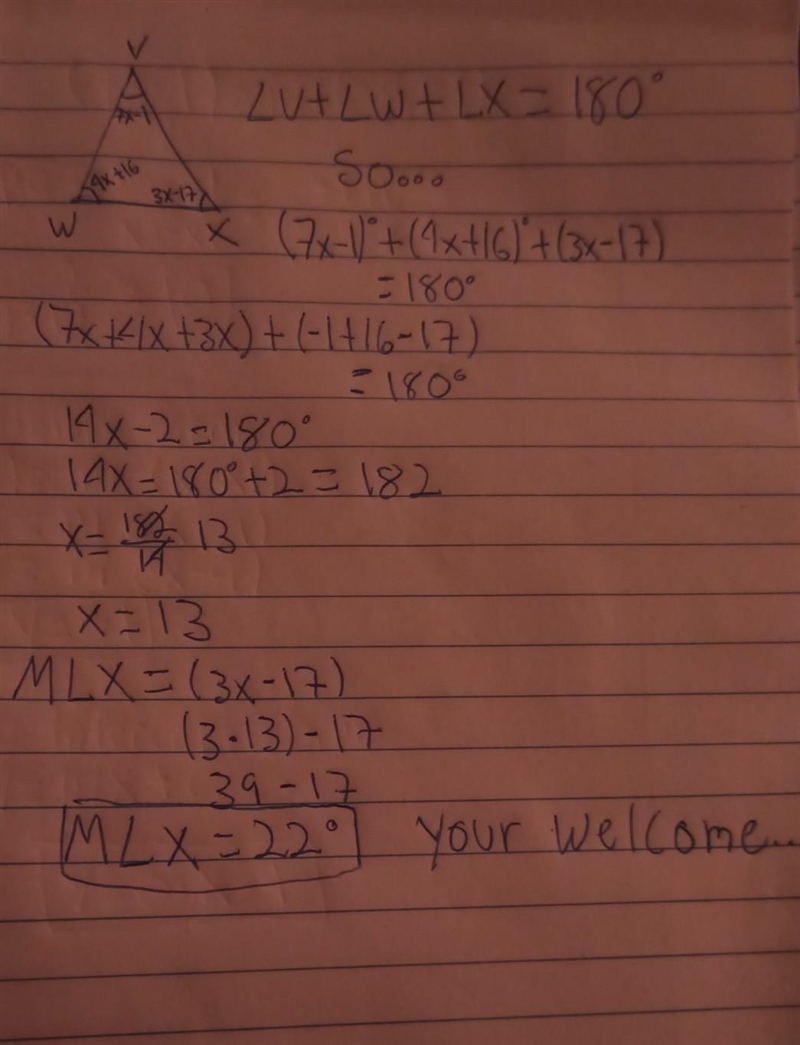 V
7x-1
4x+16
3x-17
W
X
∠V+∠W+∠X=180°
So...
(7x-1)°+(4x+16)°+(3x-17)
=180°
(7x+4x+3x)+(-1+16-17)
=180°
14x-2=180°
14x=180°+2=182
x=182/14 13
x=13
M∠X=(3x-17)
(3·13)-17
39-17
M∠X=22°
your welcome...